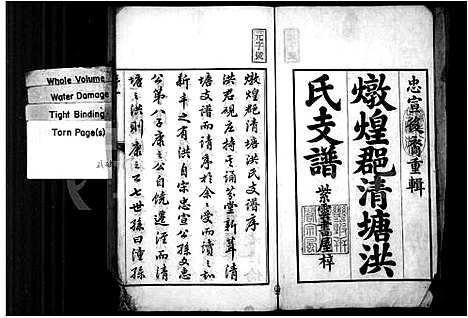 忠宣後裔重輯
燉煌郡清塘洪
氏支譜
紫雲書屋梓
元字號
燉煌郡清塘洪氏支譜序
洪君硯庄持其誦芬堂新葺清
塘支譜而請序於余余受而讀之
新丰之有洪自宗忠宣公孫文惠
公第八子康之公自饒遷涇而清
塘之洪則康之公七世孫曰潼孫
Whole Volume
Water Damage
Tight Binding
Torn Page(s)